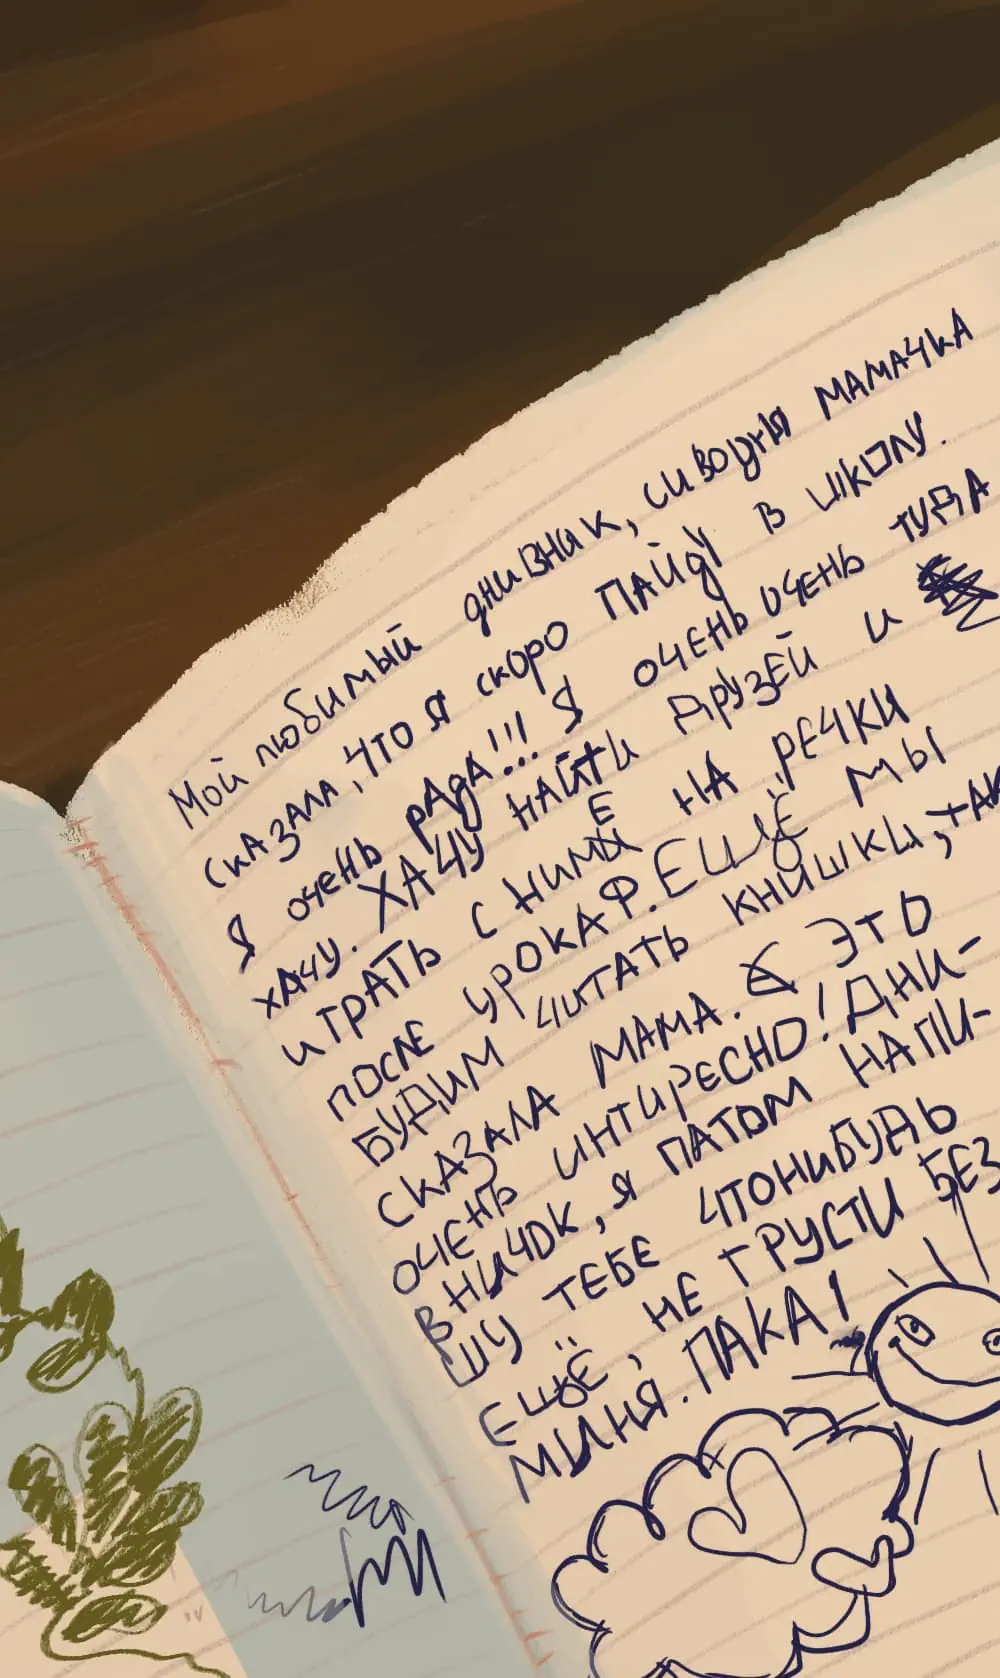 Мой любимый дневник, сиводня мамачка
сказала, что я скоро пайду в школу.
Я очень рада!!! Я очень очень туда
хачу. Хачу найти друзей и
играть с ними на речки
после урокаф. Ещё мы
будим читать книшки, так
сказала мама. Это
очень интиресно! Дни-
вничок, я патом напи-
шу тебе чтонибудь
ещё, не грусти без
миня. Пака!